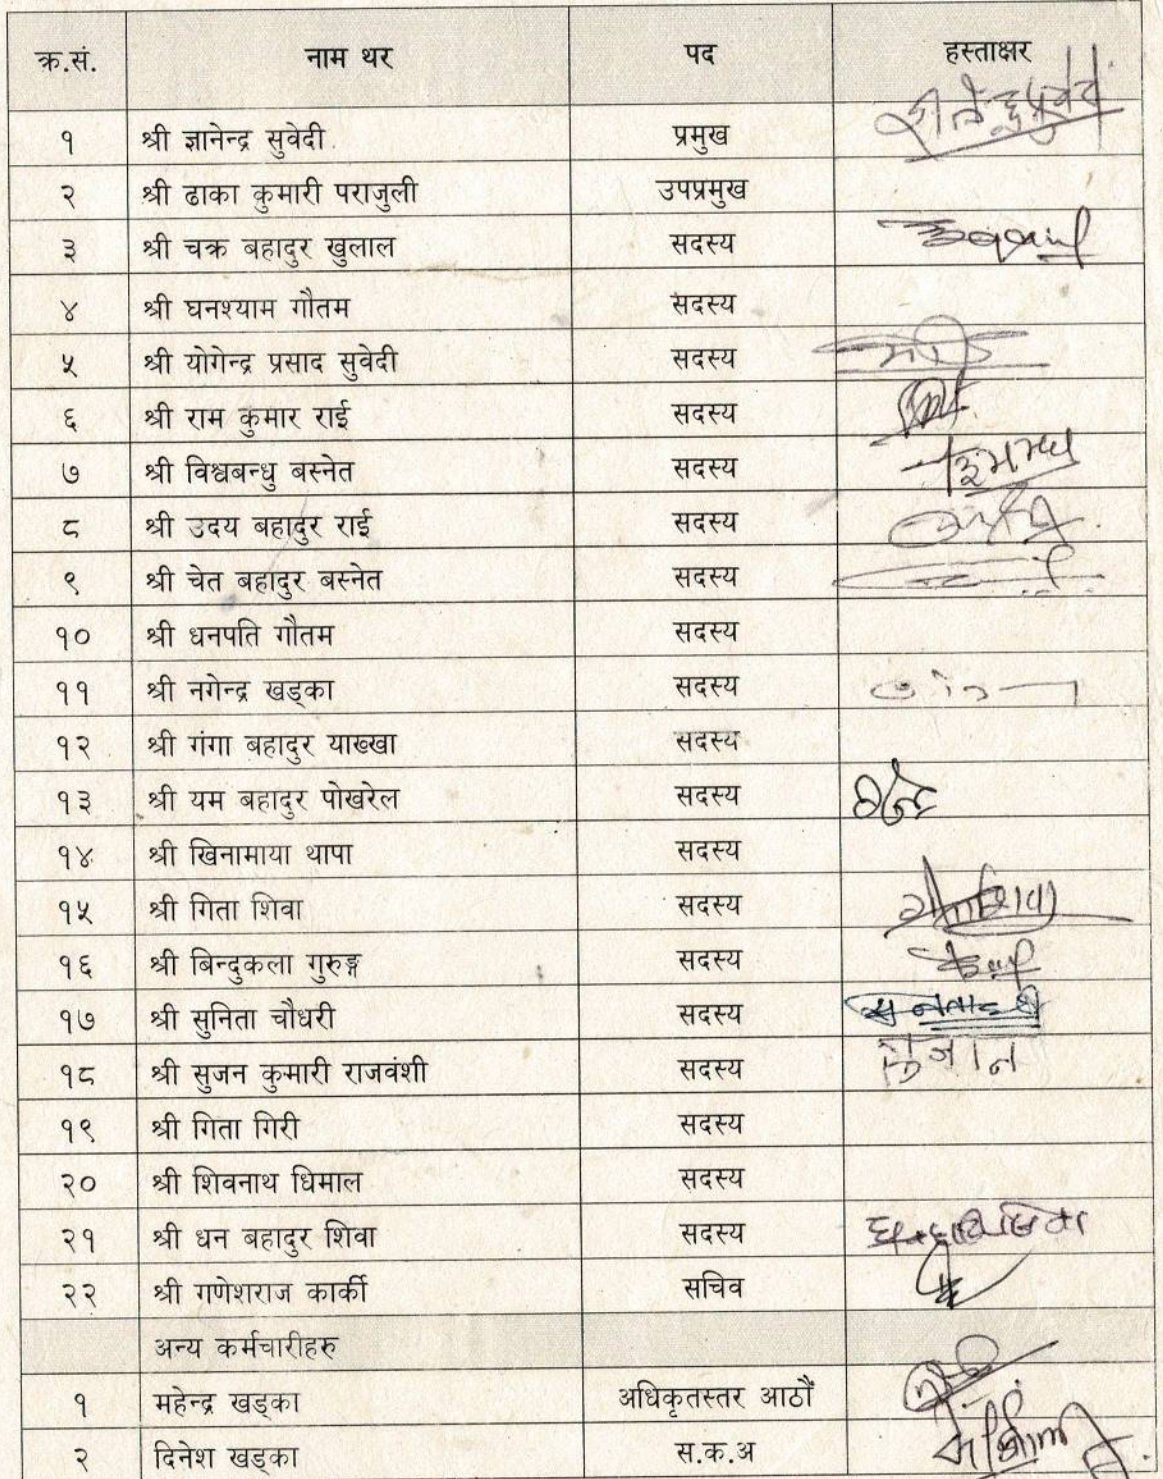 क्र.सं. नाम थर पद हस्ताक्षर
१ श्री ज्ञानेन्द्र सुवेदी प्रमुख
२ श्री ढाका कुमारी पराजुली उपप्रमुख
३ श्री चक्र बहादुर खुलाल सदस्य
४ श्री घनश्याम गौतम सदस्य
५ श्री योगेन्द्र प्रसाद सुवेदी सदस्य
६ श्री राम कुमार राई सदस्य
७ श्री विश्वबन्धु बस्नेत सदस्य
८ श्री उदय बहादुर राई सदस्य
९ श्री चेत बहादुर बस्नेत सदस्य
१० श्री धनपति गौतम सदस्य
११ श्री नगेन्द्र खड्का सदस्य
१२ श्री गंगा बहादुर याख्खा सदस्य
१३ श्री यम बहादुर पोखरेल सदस्य
१४ श्री खिनामाया थापा सदस्य
१५ श्री गिता शिवा सदस्य
१६ श्री बिन्दुकला गुरुङ्ग सदस्य
१७ श्री सुनिता चौधरी सदस्य
१८ श्री सुजन कुमारी राजवंशी सदस्य सुजान
१९ श्री गिता गिरी सदस्य
२० श्री शिवनाथ धिमाल सदस्य
२१ श्री धन बहादुर शिवा सदस्य
२२ श्री गणेशराज कार्की सचिव
अन्य कर्मचारीहरु
१ महेन्द्र खड्का अधिकृतस्तर आठौं
२ दिनेश खड्का स.क.अ